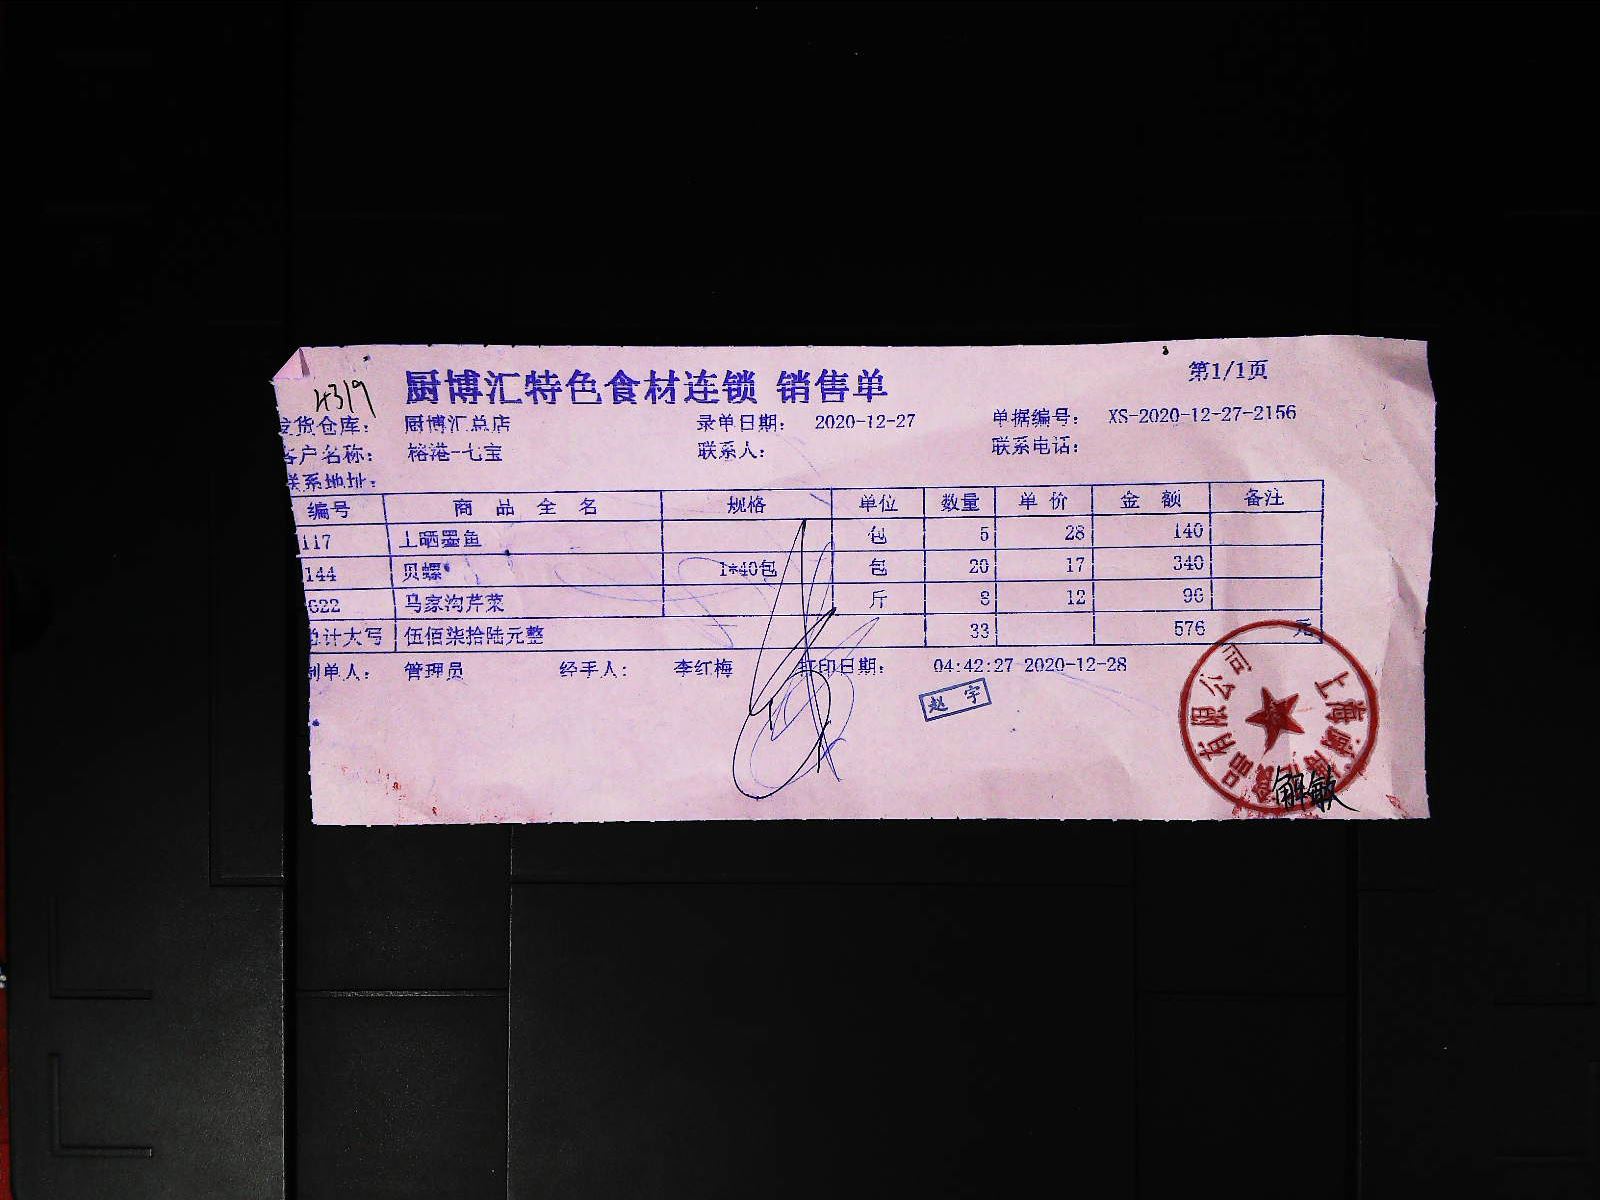 4319
厨博汇特色食材连锁 销售单
第1/1页
发货仓库: 厨博汇总店 录单日期: 2020-12-27 单据编号: XS-2020-12-27-2156
客户名称: 榕港-七宝 联系人: 联系电话:
联系地址:
编号 商品全名 规格 单位 数量 单价 金额 备注
117 上晒墨鱼 包 5 28 140
144 贝螺 1*40包 包 20 17 340
622 马家沟芹菜 斤 8 12 96
总计大写 伍佰柒拾陆元整 33 576 元
制单人: 管理员 经手人: 李红梅 打印日期: 04:42:27 2020-12-28
赵宇
上海 食品有限公司
解敏